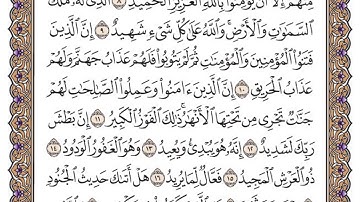 مِنْهُمْ إِلَّا أَن يُؤْمِنُوا۟ بِٱللَّهِ ٱلْعَزِيزِ ٱلْحَمِيدِ ٨ ٱلَّذِى لَهُۥ مُلْكُ
ٱلسَّمَـٰوَٰتِ وَٱلْأَرْضِ ۚ وَٱللَّهُ عَلَىٰ كُلِّ شَىْءٍ شَهِيدٌ ٩ إِنَّ ٱلَّذِينَ
فَتَنُوا۟ ٱلْمُؤْمِنِينَ وَٱلْمُؤْمِنَـٰتِ ثُمَّ لَمْ يَتُوبُوا۟ فَلَهُمْ عَذَابُ جَهَنَّمَ وَلَهُمْ
عَذَابُ ٱلْحَرِيقِ ١٠ إِنَّ ٱلَّذِينَ ءَامَنُوا۟ وَعَمِلُوا۟ ٱلصَّـٰلِحَـٰتِ لَهُمْ
جَنَّـٰتٌ تَجْرِى مِن تَحْتِهَا ٱلْأَنْهَـٰرُ ۚ ذَٰلِكَ ٱلْفَوْزُ ٱلْكَبِيرُ ١١ إِنَّ بَطْشَ
رَبِّكَ لَشَدِيدٌ ١٢ إِنَّهُۥ هُوَ يُبْدِئُ وَيُعِيدُ ١٣ وَهُوَ ٱلْغَفُورُ ٱلْوَدُودُ ١٤
ذُو ٱلْعَرْشِ ٱلْمَجِيدُ ١٥ فَعَّالٌ لِّمَا يُرِيدُ ١٦ هَلْ أَتَىٰكَ حَدِيثُ ٱلْجُنُودِ